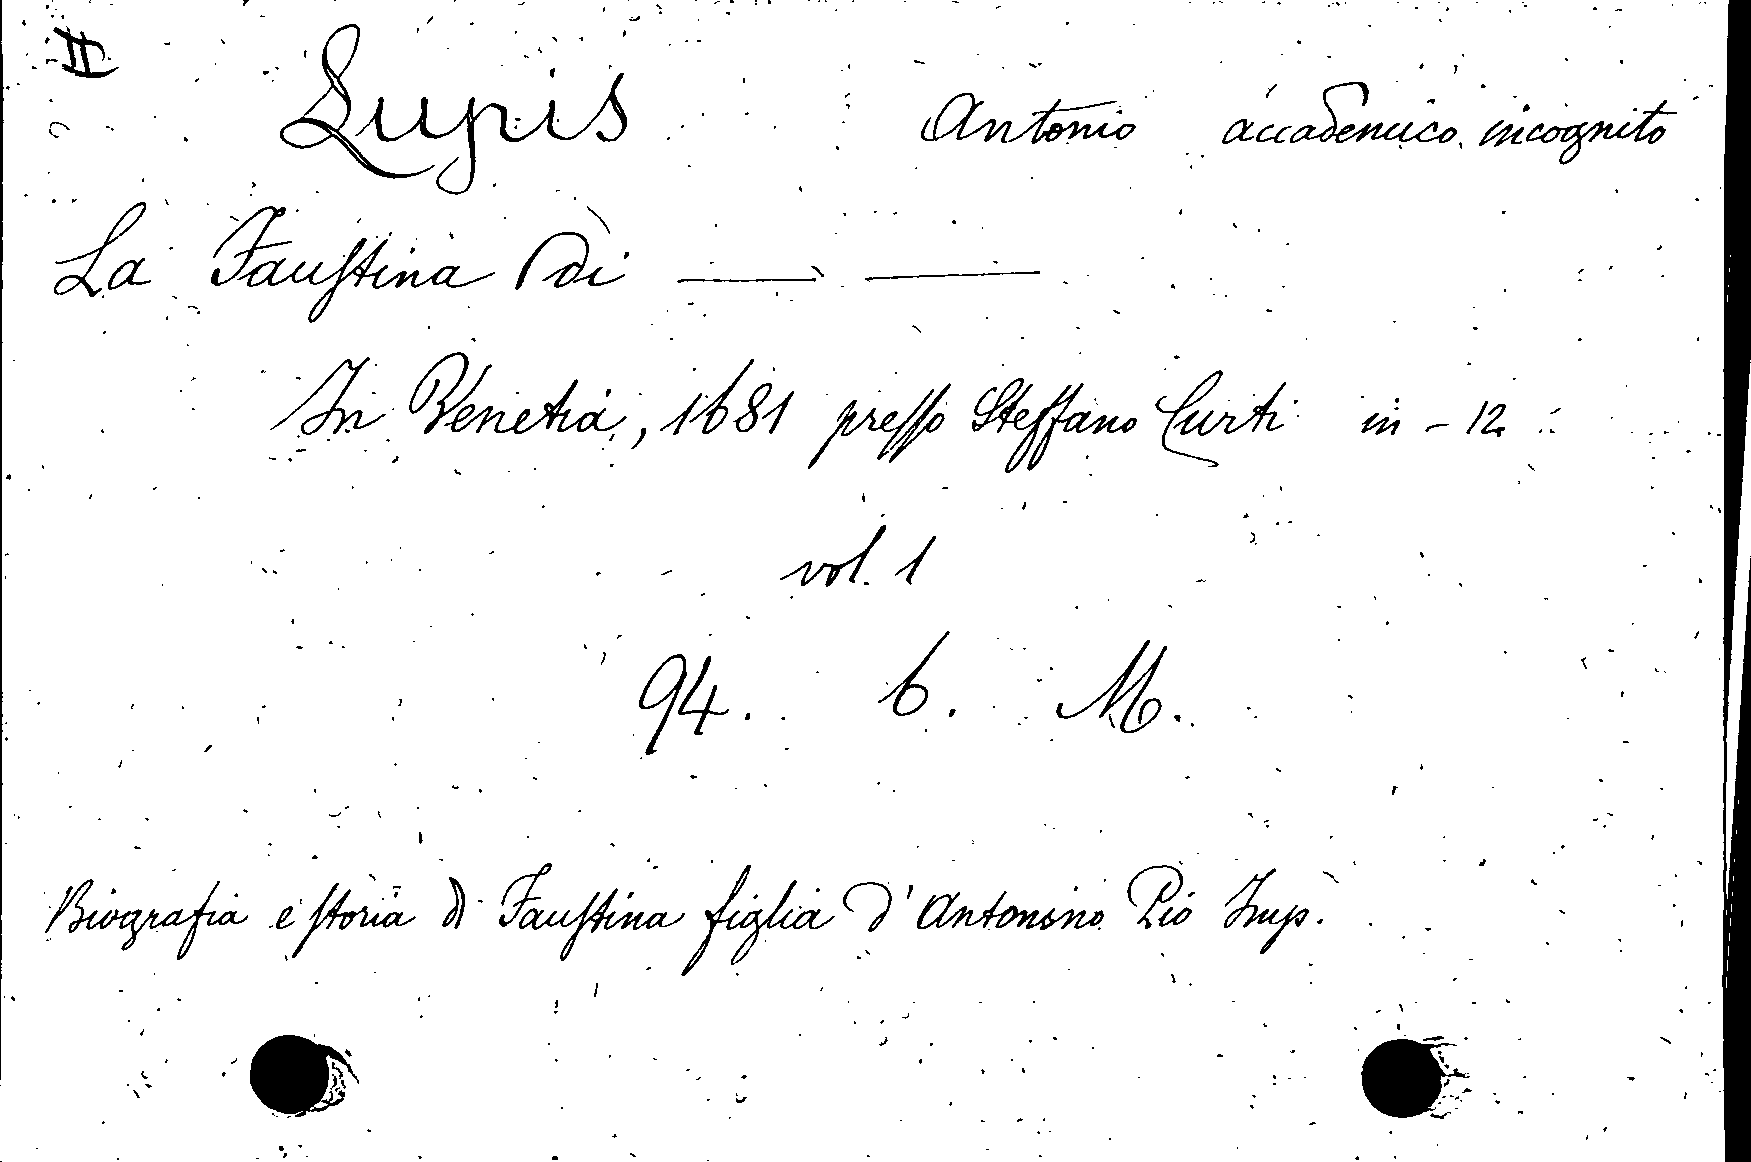 II
Lupis Antonio accademico incognito
La Faustina di —— ——
In Venetia, 1681 presso Steffano Curti in - 12.
vol. 1
94. 6. M.
Biografia e storia di Faustina figlia d'Antonino Pio Imp.